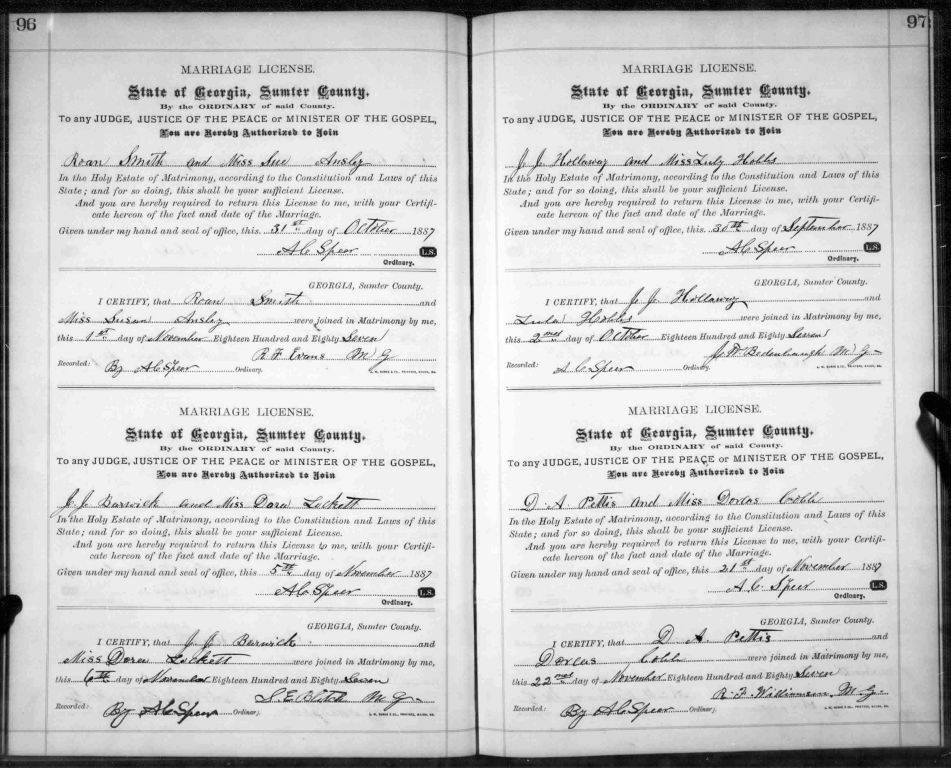 96
MARRIAGE LICENSE.
State of Georgia, Sumter County.
By the ORDINARY of said County.
To any JUDGE, JUSTICE OF THE PEACE or MINISTER OF THE GOSPEL,
You are Hereby Authorized to Join
Roan Smith and Miss Sue Ansley
In the Holy Estate of Matrimony, according to the Constitution and Laws of this
State; and for so doing, this shall be your sufficient License.
And you are hereby required to return this License to me, with your Certifi-
cate hereon of the fact and date of the Marriage.
Given under my hand and seal of office, this 31st day of October 1887
A C Speer L.S.
Ordinary.
GEORGIA, Sumter County.
I CERTIFY, that Roan Smith and
Miss Susan Ansley were joined in Matrimony by me,
this 1st day of November Eighteen Hundred and Eighty Seven
R. F. Evans M G
Recorded: By A C Speer Ordinary.
MARRIAGE LICENSE.
State of Georgia, Sumter County.
By the ORDINARY of said County.
To any JUDGE, JUSTICE OF THE PEACE or MINISTER OF THE GOSPEL,
You are Hereby Authorized to Join
J. J. Barwick and Miss Dora Lockett
In the Holy Estate of Matrimony, according to the Constitution and Laws of this
State; and for so doing, this shall be your sufficient License.
And you are hereby required to return this License to me, with your Certifi-
cate hereon of the fact and date of the Marriage.
Given under my hand and seal of office, this 5th day of November 1887
A C Speer L.S.
Ordinary.
GEORGIA, Sumter County.
I CERTIFY, that J. J. Barwick and
Miss Dora Lockett were joined in Matrimony by me,
this 6th day of November Eighteen Hundred and Eighty Seven
M. G.
Recorded: By A C Speer Ordinary.
97
MARRIAGE LICENSE.
State of Georgia, Sumter County.
By the ORDINARY of said County.
To any JUDGE, JUSTICE OF THE PEACE or MINISTER OF THE GOSPEL,
You are Hereby Authorized to Join
J. J. Holloway and Miss Luly Hobbs
In the Holy Estate of Matrimony, according to the Constitution and Laws of this
State; and for so doing, this shall be your sufficient License.
And you are hereby required to return this License to me, with your Certifi-
cate hereon of the fact and date of the Marriage.
Given under my hand and seal of office, this 30th day of September 1887
A C Speer L.S.
Ordinary.
GEORGIA, Sumter County.
I CERTIFY, that J. J. Holloway and
Lula Hobbs were joined in Matrimony by me,
this 2nd day of October Eighteen Hundred and Eighty Seven
M G
Recorded: A C Speer Ordinary.
MARRIAGE LICENSE.
State of Georgia, Sumter County.
By the ORDINARY of said County.
To any JUDGE, JUSTICE OF THE PEACE or MINISTER OF THE GOSPEL,
You are Hereby Authorized to Join
D A Pettis and Miss Dorcas Cobb
In the Holy Estate of Matrimony, according to the Constitution and Laws of this
State; and for so doing, this shall be your sufficient License.
And you are hereby required to return this License to me, with your Certifi-
cate hereon of the fact and date of the Marriage.
Given under my hand and seal of office, this 21st day of November 1887
A C Speer L.S.
Ordinary.
GEORGIA, Sumter County.
I CERTIFY, that D A. Pettis and
Dorcas Cobb were joined in Matrimony by me,
this 22nd day of November Eighteen Hundred and Eighty Seven
R. F. Williamson M. G.
Recorded: By A C Speer Ordinary.